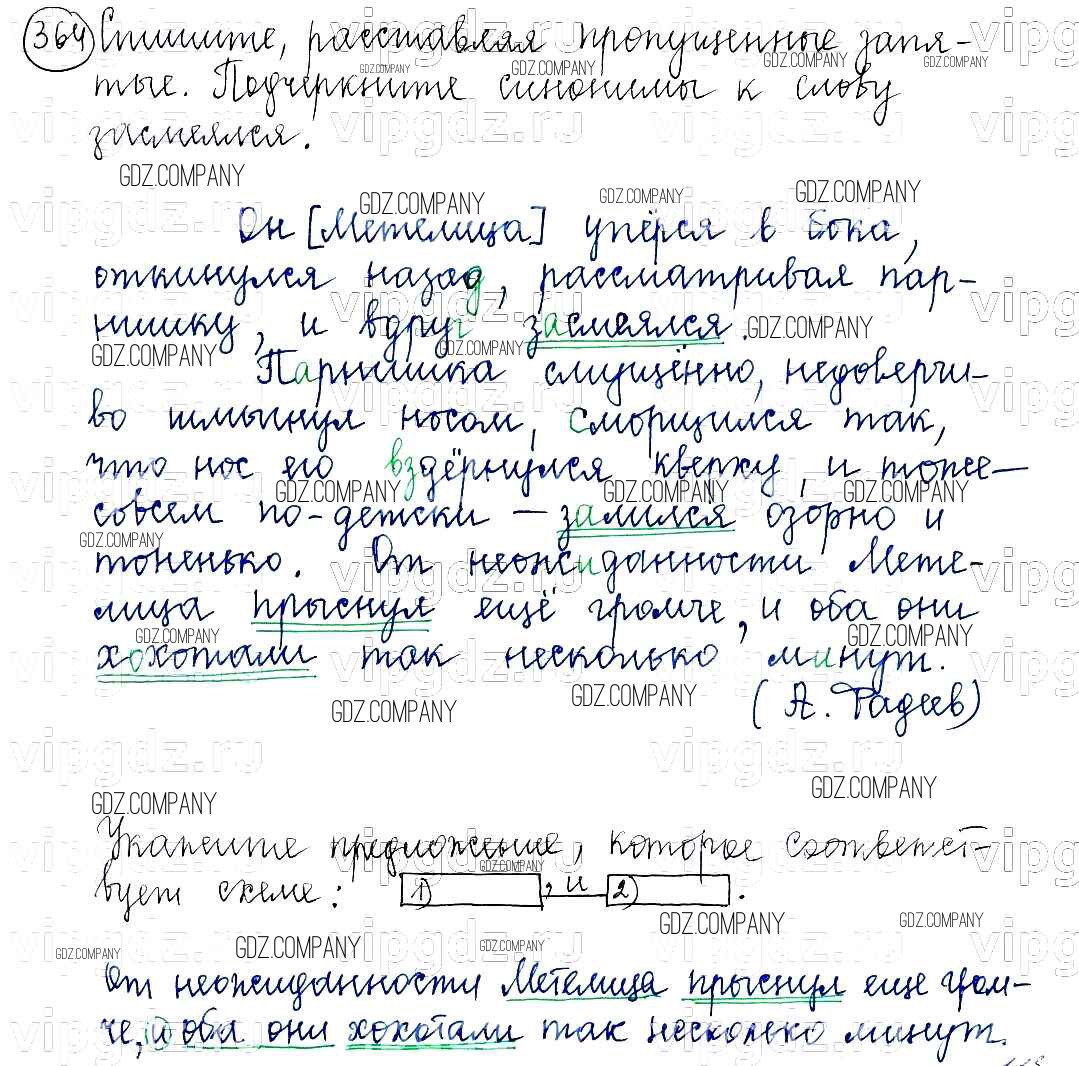 364 Спишите, расставляя пропущенные запя-
тые. Подчеркните синонимы к слову
засмеялся.
Он [Метелица] упёрся в бока,
откинулся назад, рассматривая пар-
нишку, и вдруг засмеялся.
Парнишка смущённо, недоверчи-
во шмыгнул носом, сморщился так,
что нос его вздёрнулся кверху, и тоже —
совсем по-детски — залился озорно и
тоненько. От неожиданности Мете-
лица прыснул ещё громче, и оба они
хохотали так несколько минут.
(А. Фадеев)
Укажите предложение, которое соответст-
вует схеме: 1) , и 2) .
От неожиданности Метелица прыснул еще гром-
че, и оба они хохотали так несколько минут.
GDZ.COMPANY
vipgdz.ru